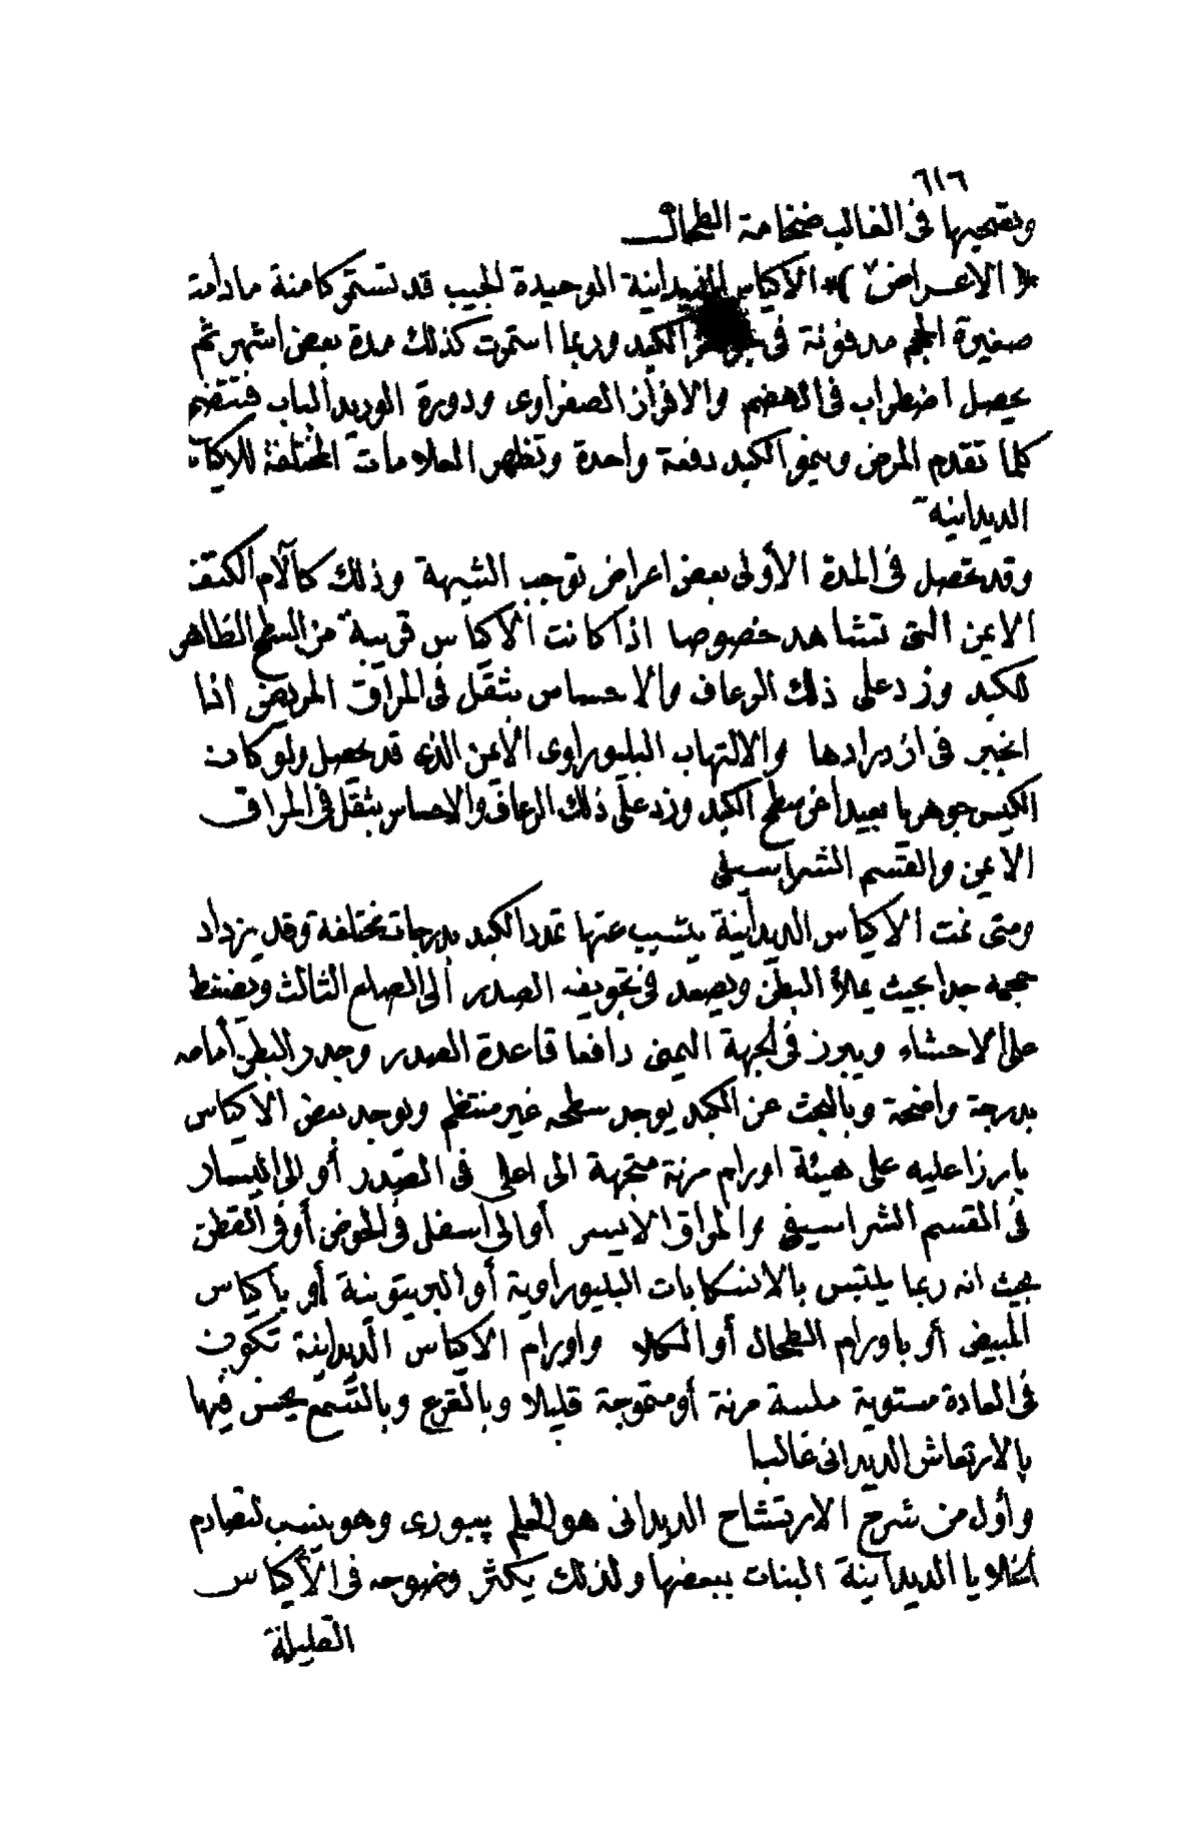 ٦١٦
ويصحبها فى الغالب ضخامة الطحال
*( الاعراض )* الاكياس الديدانية الوحيدة الجيب قد تستمر كامنة مادامت
صغيرة الحجم مدفونة فى جوهر الكبد وربما استمرت كذلك مدة بعض أشهر ثم
يحصل اضطراب فى الهضم والافراز الصفراوى ودورة الوريد الباب فتتضح
كلما تقدم المرض وينمو الكبد دفعة واحدة وتظهر العلامات المختلفة للاكياس
الديدانية
وقد تحصل فى المدة الأولى بعض اعراض توجب الشبهة وذلك كآلام الكتف
الايمن التى تشاهد خصوصا اذا كانت الأكياس قريبة من السطح الظاهر
للكبد وزد على ذلك الرعاف والاحساس بثقل فى المراق المريض اذا
اخبر فى ازدرادها والالتهاب البليوراوى الأيمن الذى قد يحصل ولو كان
الكيس جوهريا بعيدا عن سطح الكبد وزد على ذلك الرعاف والاحساس بثقل فى المراق
الايمن والقسم الشراسيفى
ومتى نمت الاكياس الديدانية يتسبب عنها تمدد الكبد بدرجات مختلفة وقد يزداد
حجمه جدا بحيث يملأ البطن ويصعد فى تجويف الصدر الى الضلع الثالث ويضغط
على الاحشاء ويبرز فى الجهة اليمنى دافعا قاعدة الصدر وجدر البطن أمامه
بدرجة واضحة وبالبحث عن الكبد يوجد سطحه غير منتظم ويوجد بعض الاكياس
بارزا عليه على هيئة اورام مرنة متجهة الى اعلى فى الصدر أو الى اليسار
فى القسم الشراسيفى والمراق الايسر أو الى أسفل فى الحوض أو فى القطن
بحيث انه ربما يلتبس بالانسكابات البليوراوية أو البريتونية أو بأكياس
المبيض أو باورام الطحال أو الكلا واورام الاكياس الديدانية تكون
فى العادة مستوية ملسة مرنة أو متموجة قليلا وبالقرع وبالتسمع يحس فيها
بالارتعاش الديدانى غالبا
وأول من شرح الارتشاح الديدانى هو المعلم بيورى وهو ينسب لتصادم
الخلايا الديدانية البنات ببعضها ولذلك يكثر وضوحه فى الأكياس
القليلة